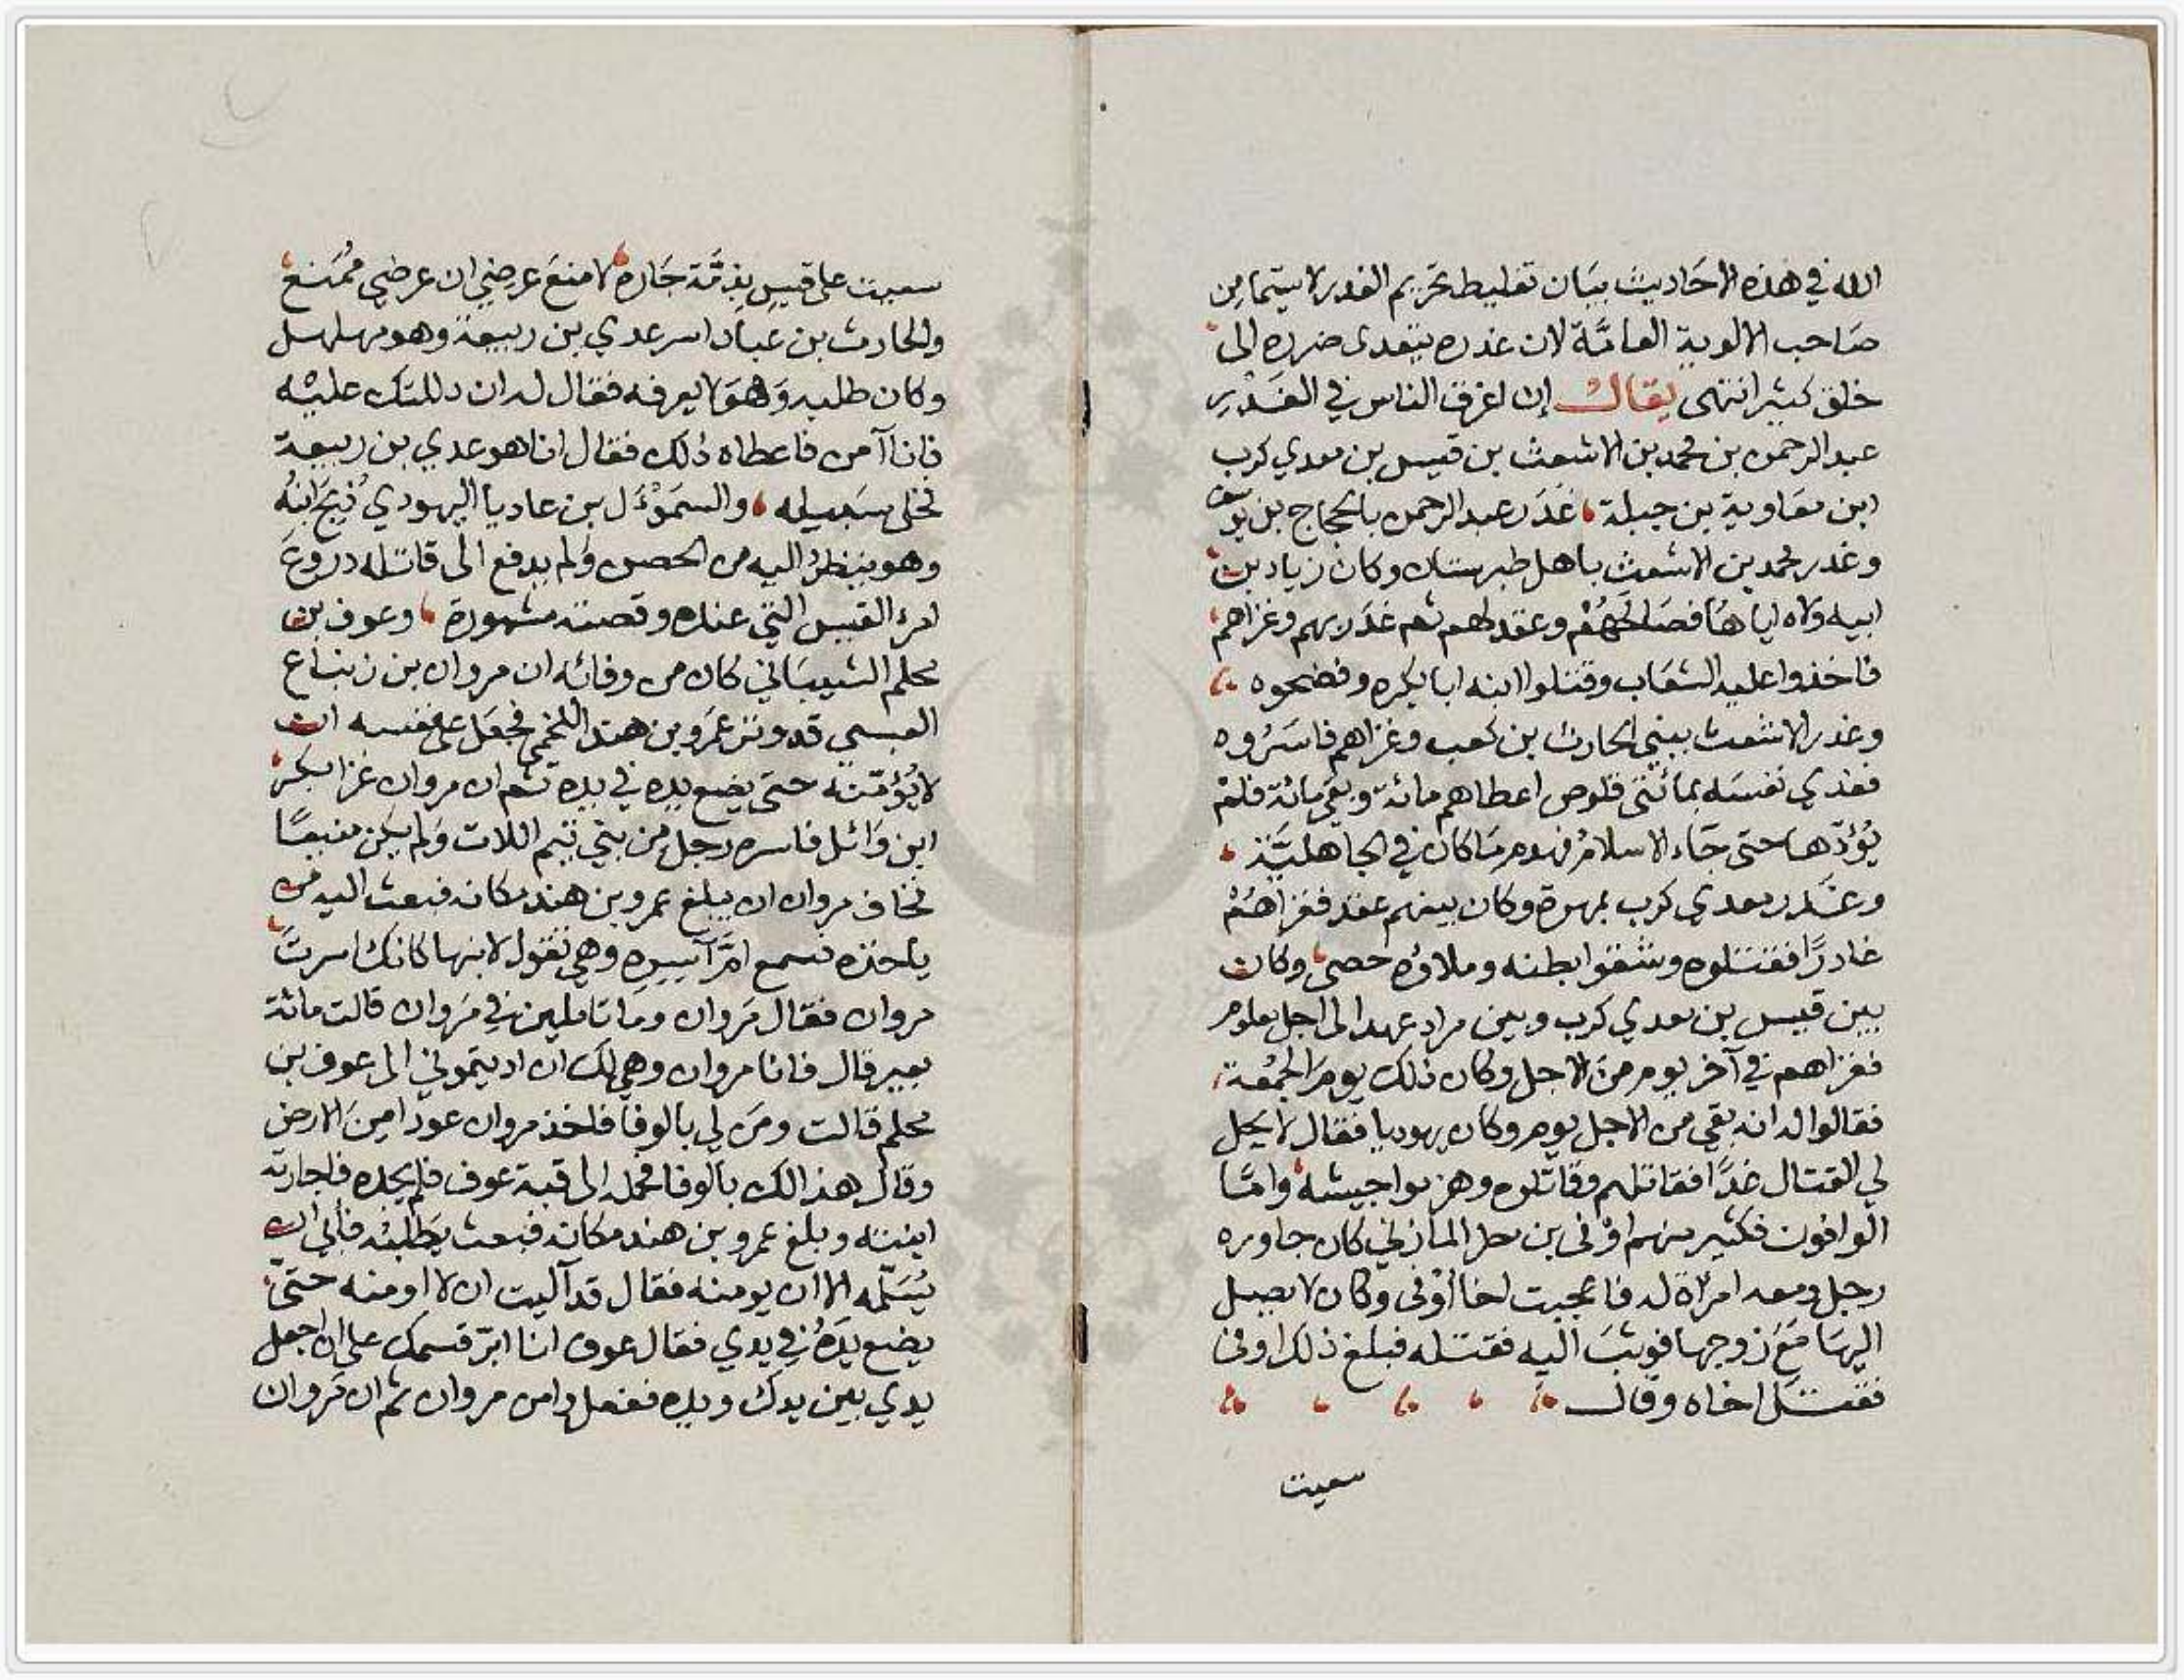 الله في هذه الاحاديث بيان تغليط تحريم الغدر لا سيما من
صاحب الالوية العامة لان غدره يتعدى ضرره الى
خلق كثير انتهى يقال إن اعرق الناس في الغدر
عبد الرحمن بن محمد بن الاشعث بن قيس بن معدي كرب
ابن معاوية بن جبلة غدر عبد الرحمن بالحجاج بن يوسف
وغدر محمد بن الاشعث باهل طبرستان وكان زياد بن
ابيه ولاه اياها فصالحهم وعقد لهم ثم غدر بهم وغزاهم
فاخذوا عليه الشعاب وقتلوا ابنه ابا بكره وفضحوه
وغدر الاشعث ببني الحارث بن كعب وغزاهم فاسروه
ففدي نفسه بمائتي قلوص اعطاهم مائة وبقي مائة فلم
يؤدها حتى جاء الاسلام فهدم ما كان في الجاهلية
وغدر معدي كرب بمهرة وكان بينهم عقد فغزاهم
غادرًا فقتلوه وشقوا بطنه وملاوه حصى وكان
بين قيس بن معدي كرب وبين مراد عهد الى اجل معلوم
فغزاهم في آخر يوم من الاجل وكان ذلك يوم الجمعة
فقالوا له انه بقي من الاجل يوم وكان يهوديا فقال لا يحل
لي القتال غدًا فقاتلهم وقاتلوه وهزموا جيشه واما
الوافون فكثير منهم اوفى بن مطر المازني كان جاوره
رجل ومعه امراة له فاعجبت اخا أوفى وكان لا يصل
اليها مع زوجها فوثب اليه فقتله فبلغ ذلك اوفى
فقتل اخاه وقال
سعيت
سعيت على قيس بذمة جاره لامنع عرضي ان عرضي ممنع
والحارث بن عباد اسر عدي بن ربيعة وهو مهلهل
وكان طلبه وهو لا يعرفه فقال له ان دللتك عليه
فانا آمن فاعطاه ذلك فقال انا هو عدي بن ربيعة
فخلى سبيله والسموءل بن عاديا اليهودي ذبح ابنه
وهو ينظر اليه من الحصن ولم يدفع الى قاتله دروع
امرء القيس التي عنده وقصته مشهورة وعوف بن
محلم الشيباني كان من وفائه ان مروان بن زنباع
العبسي قد وتر عمرو بن هند اللخمي فجعل على نفسه ان
لا يؤمنه حتى يضع يده في يده ثم ان مروان غزا بكر
ابن وائل فاسره رجل من بني تيم اللات ولم يكن منيعًا
فخاف مروان ان يبلغ عمرو بن هند مكانه فبعث اليه من
ياخذه فسمع ام آسيره وهي تقول لابنها كانك اسرت
مروان فقال مروان وما تاملين في مروان قالت مائة
بعير قال فانا مروان وهي لك ان اديتموني الى عوف بن
محلم قالت ومن لي بالوفا فاخذ مروان عودا من الارض
وقال هذا لك بالوفا فحمله الى قبة عوف فلم يجده فاجارته
ابنته وبلغ عمرو بن هند مكانه فبعث يطلبه فابي ان
يسلمه الا ان يومنه فقال قد آليت ان لا اومنه حتى
يضع يده في يدي فقال عوف انا ابر قسمك على ان اجعل
يدي بين يدك ويده ففعل وامن مروان ثم ان مروان